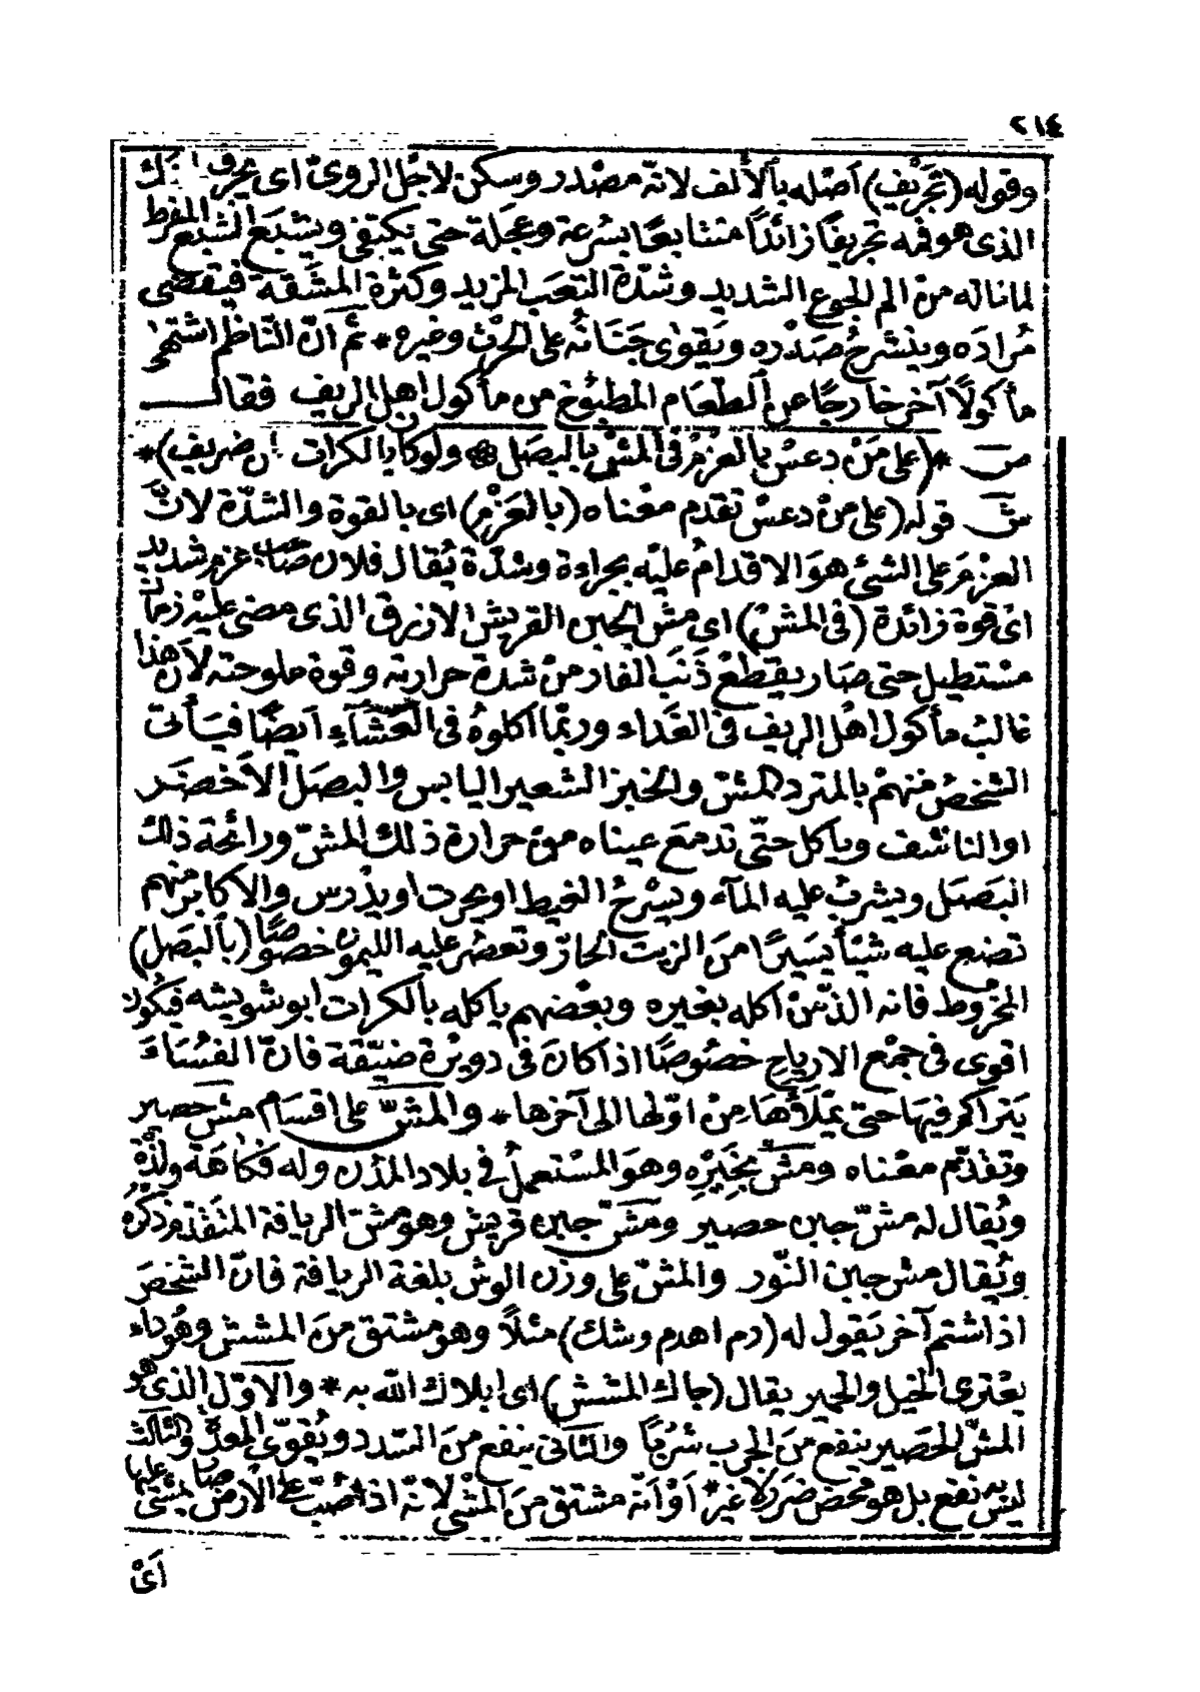 ٢١٤
وقوله (تجريف) أصله بالألف لانه مصدر وسكن لاجل الروى اى يجرف
الذى هو فيه تجريفا زائدا متتابعا بسرعة وعجلة حتى يكتفى ويشبع الشبع المفرط
لما ناله من الم الجوع الشديد وشدة التعب المزيد وكثرة المشقة فيقضى
مراده وينشرح صدره ويقوى جنانه على الحرث وغيره * ثم ان الناظم اشتهى
مأكولا آخر خارجا عن الطعام المطبوخ من مأكول اهل الريف فقال
مـن * (على من دعس بالعزم فى المش بالبصل * ولو كان بالكرات ضريف) *
ش قوله (على من دعس تقدم معناه (بالعزم) اى بالقوة والشدة لان
العزم على الشئ هو الاقدام عليه بجراءة وشدة يقال فلان صاحب عزم شديد
اى قوة زائدة (فى المش) اى مش الجبن القريش الازرق الذى مضى عليه زمان
مستطيل حتى صار يقطع ذنب الفار من شدة حرارته وقوة ملوحته لان هذا
غالب مأكول اهل الريف فى الغداء وربما اكلوه فى العشاء ايضا فيأتى
الشخص منهم بالمترد المش والخبز الشعير اليابس والبصل الاخضر
او الناشف وياكل حتى تدمع عيناه من حرارة ذلك المش ورائحة ذلك
البصل ويشرب عليه المآء ويسرح الغيط او يحرت او يدرس والاكابر منهم
تضع عليه شيأ يسيرا من الزيت الحار وتعصر عليه الليمون خصوصا (بالبصل)
المخروط فانه الذ من اكله بغيره وبعضهم ياكله بالكرات ابو شويشه فيكون
اقوى فى جمع الارياح خصوصا اذا كان فى دويرة ضيقة فان الفساء
يتراكم فيها حتى يملأها من اولها الى آخرها * والمش على اقسام مش حصير
وتقدم معناه ومش بخيره وهو المستعمل فى بلاد المدن وله فكاهة ولذة
ويقال له مش جبن حصير ومش جبن قريش وهو مش الريافة المتقدم ذكره
ويقال مش جبن النور والمش على وزن الوش بلغة الريافة فان الشخص
اذا شتم آخر يقول له (دم اهدم وشك) مثلا وهو مشتق من المشش وهو داء
يعترى الخيل والحمير يقال (جاك المشش) اى ابلاك الله به * والاول الذى هو
المش الحصير ينفع من الجرب شربا والثانى ينفع من السدد ويقوى المعدة والثالث
ليس به نفع بل هو محض ضرر لا غير او انه مشتق من المشى لانه اذا صب على الارض صار يمشى عليها
اى